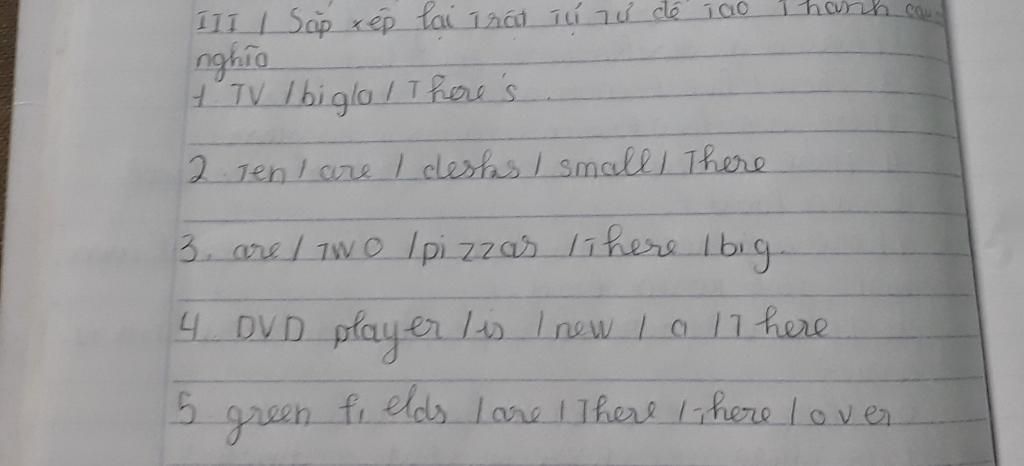 III / Sắp xếp lại trật tự từ để tạo thành câu
nghĩa
1. TV / big / a / There's.
2. Ten / are / desks / small / There
3. are / Two / pizzas / there / big.
4. DVD player / is / new / a / There
5 green fields / are / There / there / over